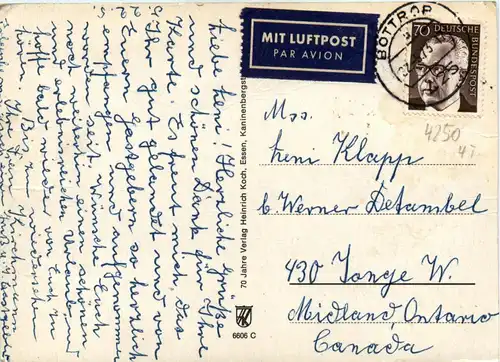 Liebe Leni! Herzliche Grüße
und schönen Dank für Ihre
Karte. Es freut mich, das
Ihr gut gelandet und von
Euren Gastgebern so herzlich
empfangen und aufgenommen
worden seit. Wünsche Euch
noch weiterhin einen schönen
und erlebnisreichen Urlaub,
hoffe bald wieder von Euch zu
hören. Bis zum Wiedersehen
70 Jahre Verlag Heinrich Koch, Essen, Kaninenbergstr.
6606 C
MIT LUFTPOST
PAR AVION
BOTTROP
70 DEUTSCHE
BUNDESPOST
4250
47
Mss.
Leni Klapp
b. Werner Detambel
430 Jonge W.
Midland, Ontario
Canada